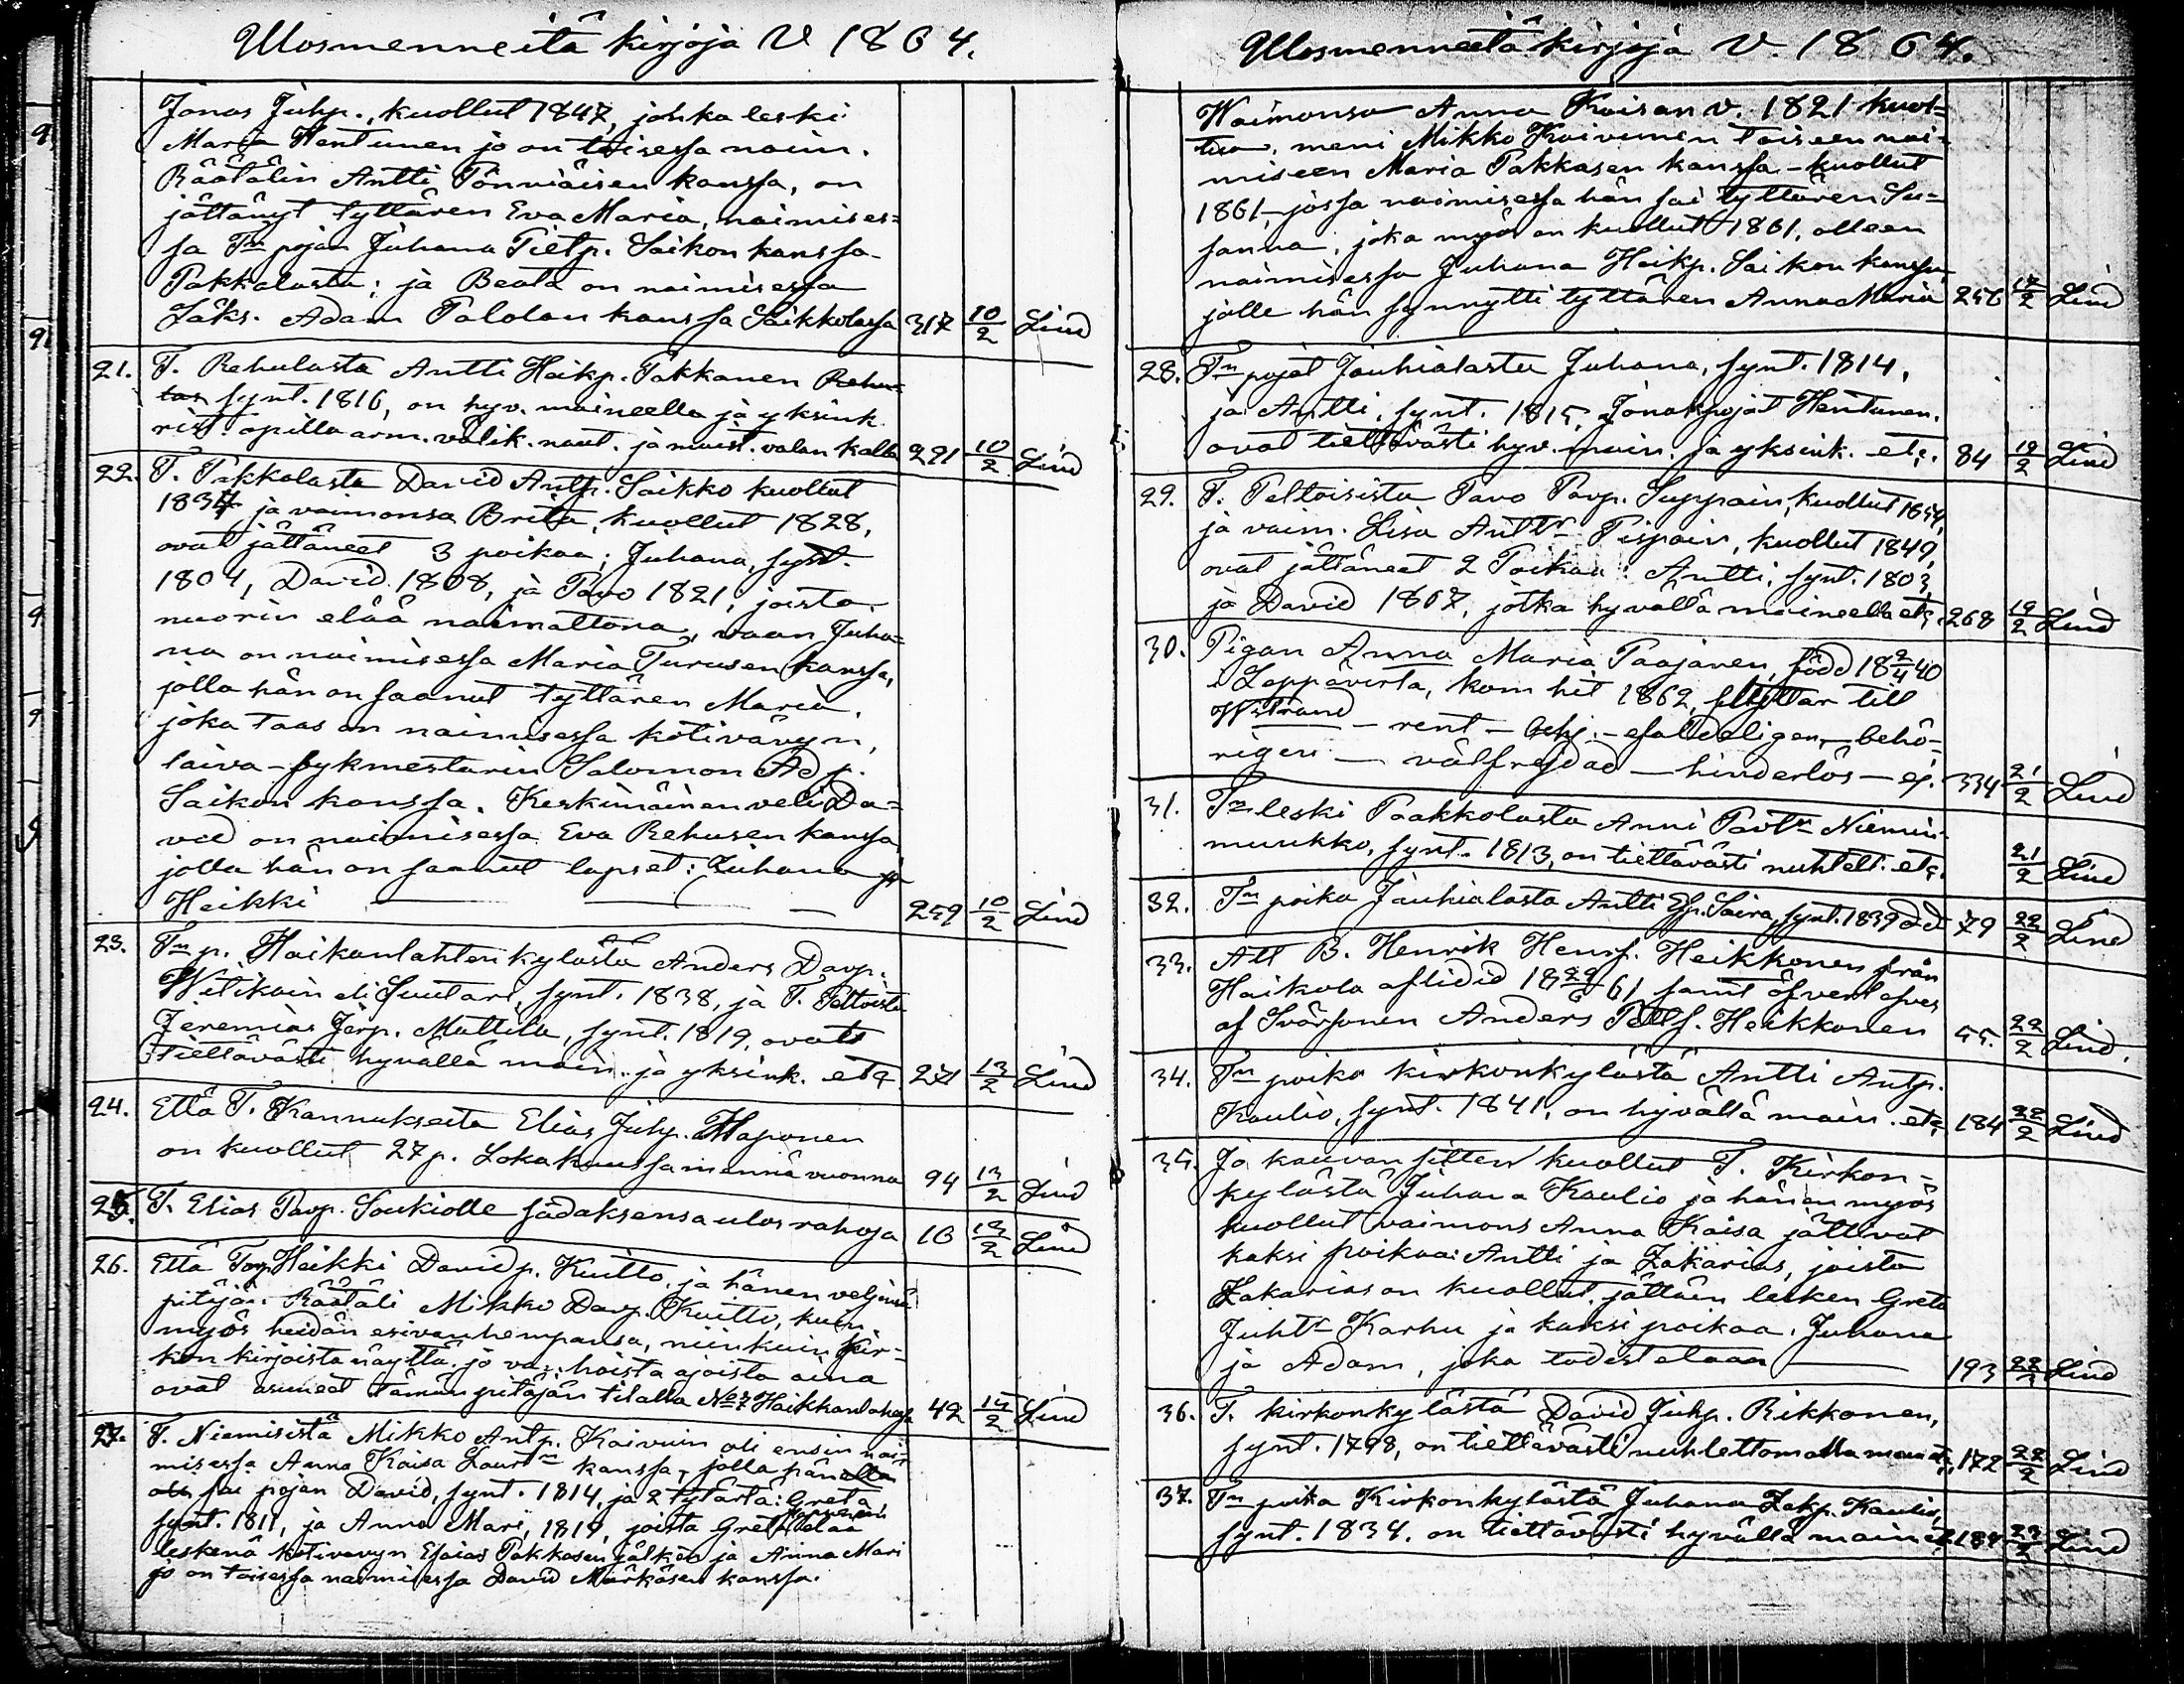 Ulosmenneitä kirjoja V 1864.
Jonas Juhp., kuollut 1847, jonka leski
Maria Hentunen jo on toisessa naim.
Räätälin Antti Tönniäisen kanssa, on
jättänyt tyttären Eva Maria, naimises=
sa Tn pojan Juhana Pietp. Saikon kanssa
Pakkalasta; ja Beata on naimisessa
Läks. Adam Talolan kanssa Saikkolassa 317 10/2 Lind
21. T. Rehulasta Antti Heikp. Pakkanen Rehu=
tar synt. 1816, on hyv. maineella ja yksink.
rist. opilla arm. välik. naut. ja muist. valan kalla 221 10/2 Lind
22. T. Pakkolasta David Antp. Saikko kuollut
1834 ja vaimonsa Brita, kuollut 1828,
ovat jättäneet 3 poikaa; Juhana, synt.
1804, David 1808, ja Pavo 1821, joista
nuorin elää naimattona, vaan Juha=
na on naimisessa Maria Turusen kanssa,
jolla hän on saanut tyttären Maria,
joka taas on naimisessa kotivävyn,
laiva-bykmestarin Salomon Ad p.
Saikon kanssa. Keskimäinen veli Da=
vid on naimisessa Eva Rehusen kanssa
jolla hän on saanut lapset: Juhana ja
Heikki 259 10/2 Lind
23. Tn p. Haikanlahden kylästä Anders Davp.
Witikain eli Suutari, synt. 1838, ja T. Peltoista
Jeremias Jerp. Mattila, synt. 1819, ovat
tiettävästi hyvällä main. ja yksink. etc 271 13/2 Lind
24. Että T. Kannuksesta Elias Juhp. Haponen
on kuollut 27 p. Lokakuussa mennä vuonna 94 13/2 Lind
25. T. Elias Pavp. Soukiolle sädaksensa ulos rahoja 16 13/2 Lind
26. Että Heikki Davidp. Kuitto, ja hänen veljensä
pitäjän Räätäli Mikko Davp. Kuitto, kuin
myös heidän esivanhempansa, niinkuin Kir=
kon kirjoista näyttä, jo vanhoista ajoista aina
ovat asuneet tämän pitäjän tilalla No 7 Haikkanlahessa 42 14/2 Lind
27. T. Niemisistä Mikko Antp. Koivuin oli ensin nai=
misessa Anna Kaisa Laurtn kanssa, jolla hän
sai pojan David, synt. 1814, ja 2 tytärtä: Greta
synt. 1811, ja Anna Mari, 1819, joista Greta elää
leskenä kotivävyn Esaias Pakkasen jälkeen ja Anna Mari
jo on toisessa naimisessa David Märkäsen kanssa.
Ulosmenneitä kirjoja V. 1864.
Waimonsa Anna Kaisan v. 1821 kuol=
tua, meni Mikko Koivuinen toiseen nai=
miseen Maria Pakkasen kanssa - kuollut
1861 - jossa naimisessa hän sai tyttären Su=
sanna, joka myös on kuollut 1861, olleen
naimisessa Juhana Heikp. Saikon kanssa,
jolle hän synnytti tyttären Anna Maria 256 17/2 Lind
28. Tn pojat Jauhialasta Juhana, synt. 1814,
ja Antti, synt. 1815, Jonaspojat Hentunen.
ovat tiettävästi hyv. main. ja yksink. etc. 84 19/2 Lind
29. T. Peltoisista Pavo Pavp. Suppain, kuollut 1854,
ja vaim. Lisa Anttr Pispain, kuollut 1849,
ovat jättäneet 2 Poikaa: Antti, synt. 1803,
ja David 1807, jotka hyvällä maineella etc. 268 19/2 Lind
30. Pigan Anna Maria Paajanen, född 18 2/4 40
i Leppävirta, kom hit 1862, flyttar till
Wstrand - rent - behj. - behö=
rigen - välfrejdad - hinderlös - ej. 334 21/2 Lind
31. Tn leski Paakkolasta Anni Pavtr Niemin
muukko, synt. 1813, on tiettävästi nuhtett. etc. 21/2 Lind
32. Tn poika Jauhialasta Antti Esp. Saira, synt. 1839 79 22/2 Lind
33. Att B. Henrik Henrs. Heikkonen från
Haikola aflidid 18 29/6 61 samt
af Svärsonen Anders Pells. Heikkonen 55. 22/2 Lind.
34. Tn poika kirkonkylästä Antti Antp.
Kaulio, synt. 1841, on hyvällä main. etc, 184 22/2 Lind
35. Jo kauvan sitten kuollut T. Kirkon=
kylästä Juhana Kaulio ja hänen myös
kuollut vaimons Anna Kaisa jättivät
kaksi poikaa: Antti ja Zakarias, joista
Zakarias on kuollut, jättäin lesken Greta
Juhtr Karhu ja kaksi poikaa. Juhana
ja Adam, joka todistetaan 193 22/2 Lind
36. T. kirkonkylästä David Juhp. Rikkonen,
synt. 1798, on tiettävästi nuhtettomalla etc, 172 22/2 Lind
37. Tn poika Kirkonkylästä Juhana Zakp. Kaulio,
synt. 1834, on tiettävästi hyvällä main etc 184 23/2 Lind